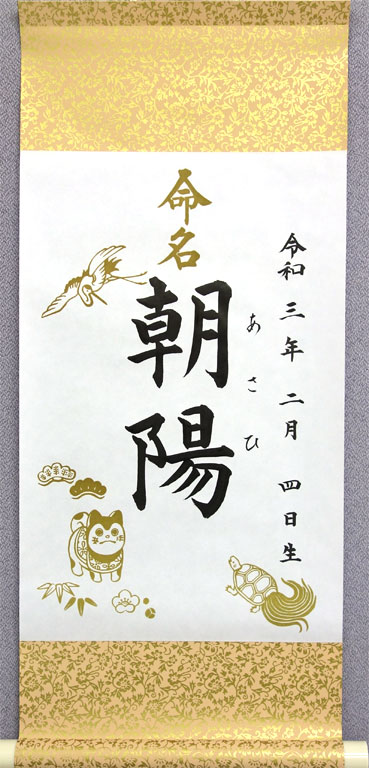 令和三年二月四日生
命名
朝陽
あさひ